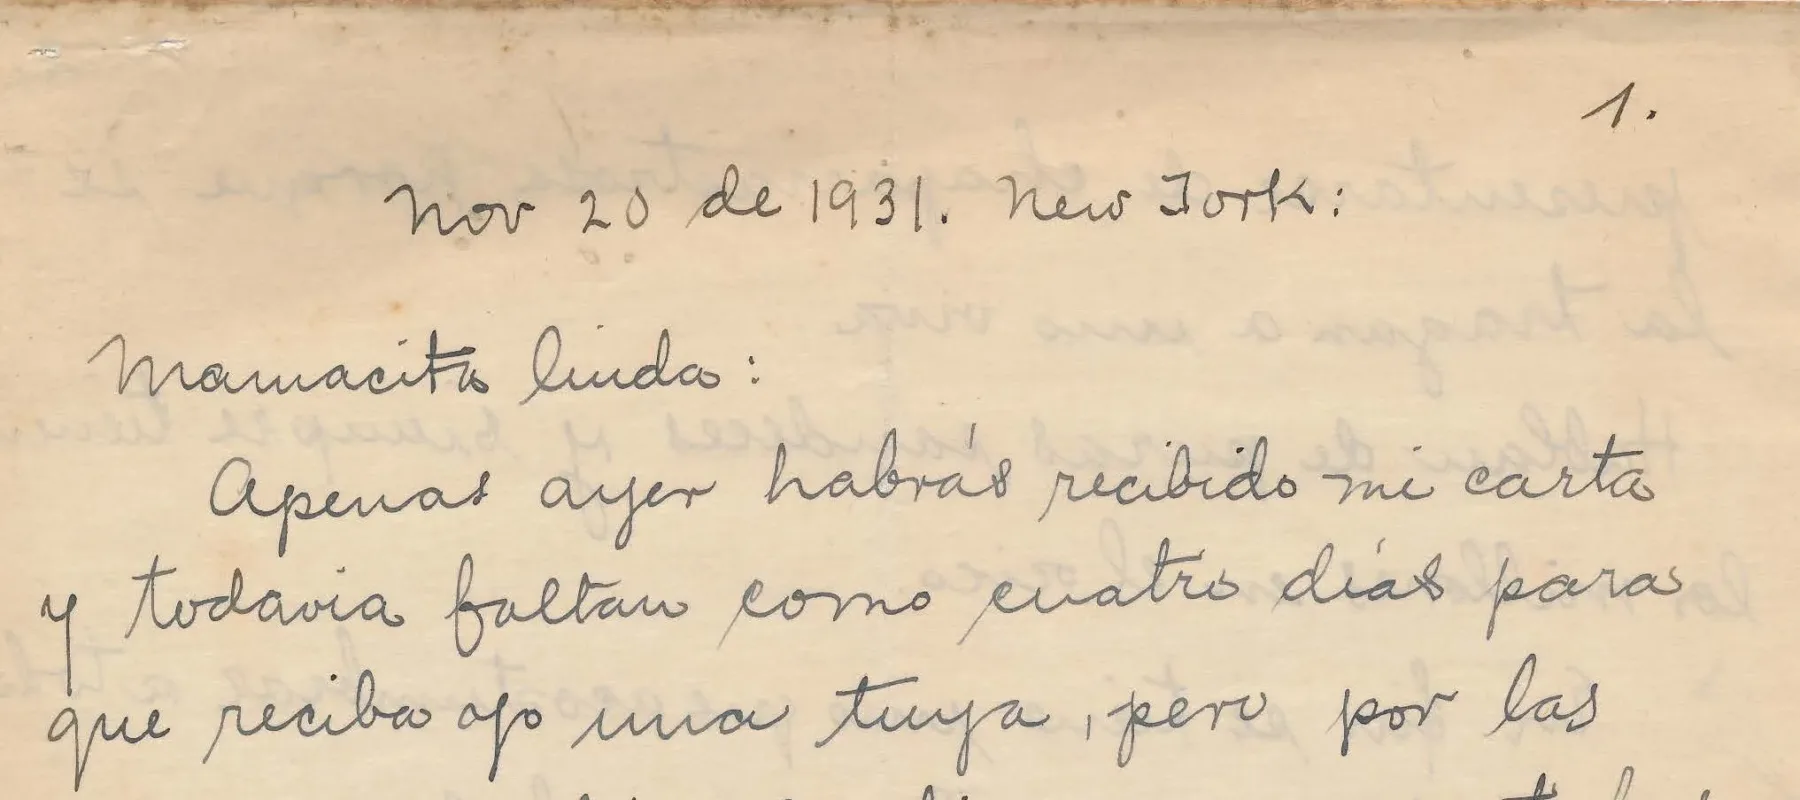 1.
Nov 20 de 1931. New York:
Mamacita linda:
Apenas ayer habrás recibido mi carta
y todavia faltan como cuatro días para
que reciba yo una tuya, pero por las